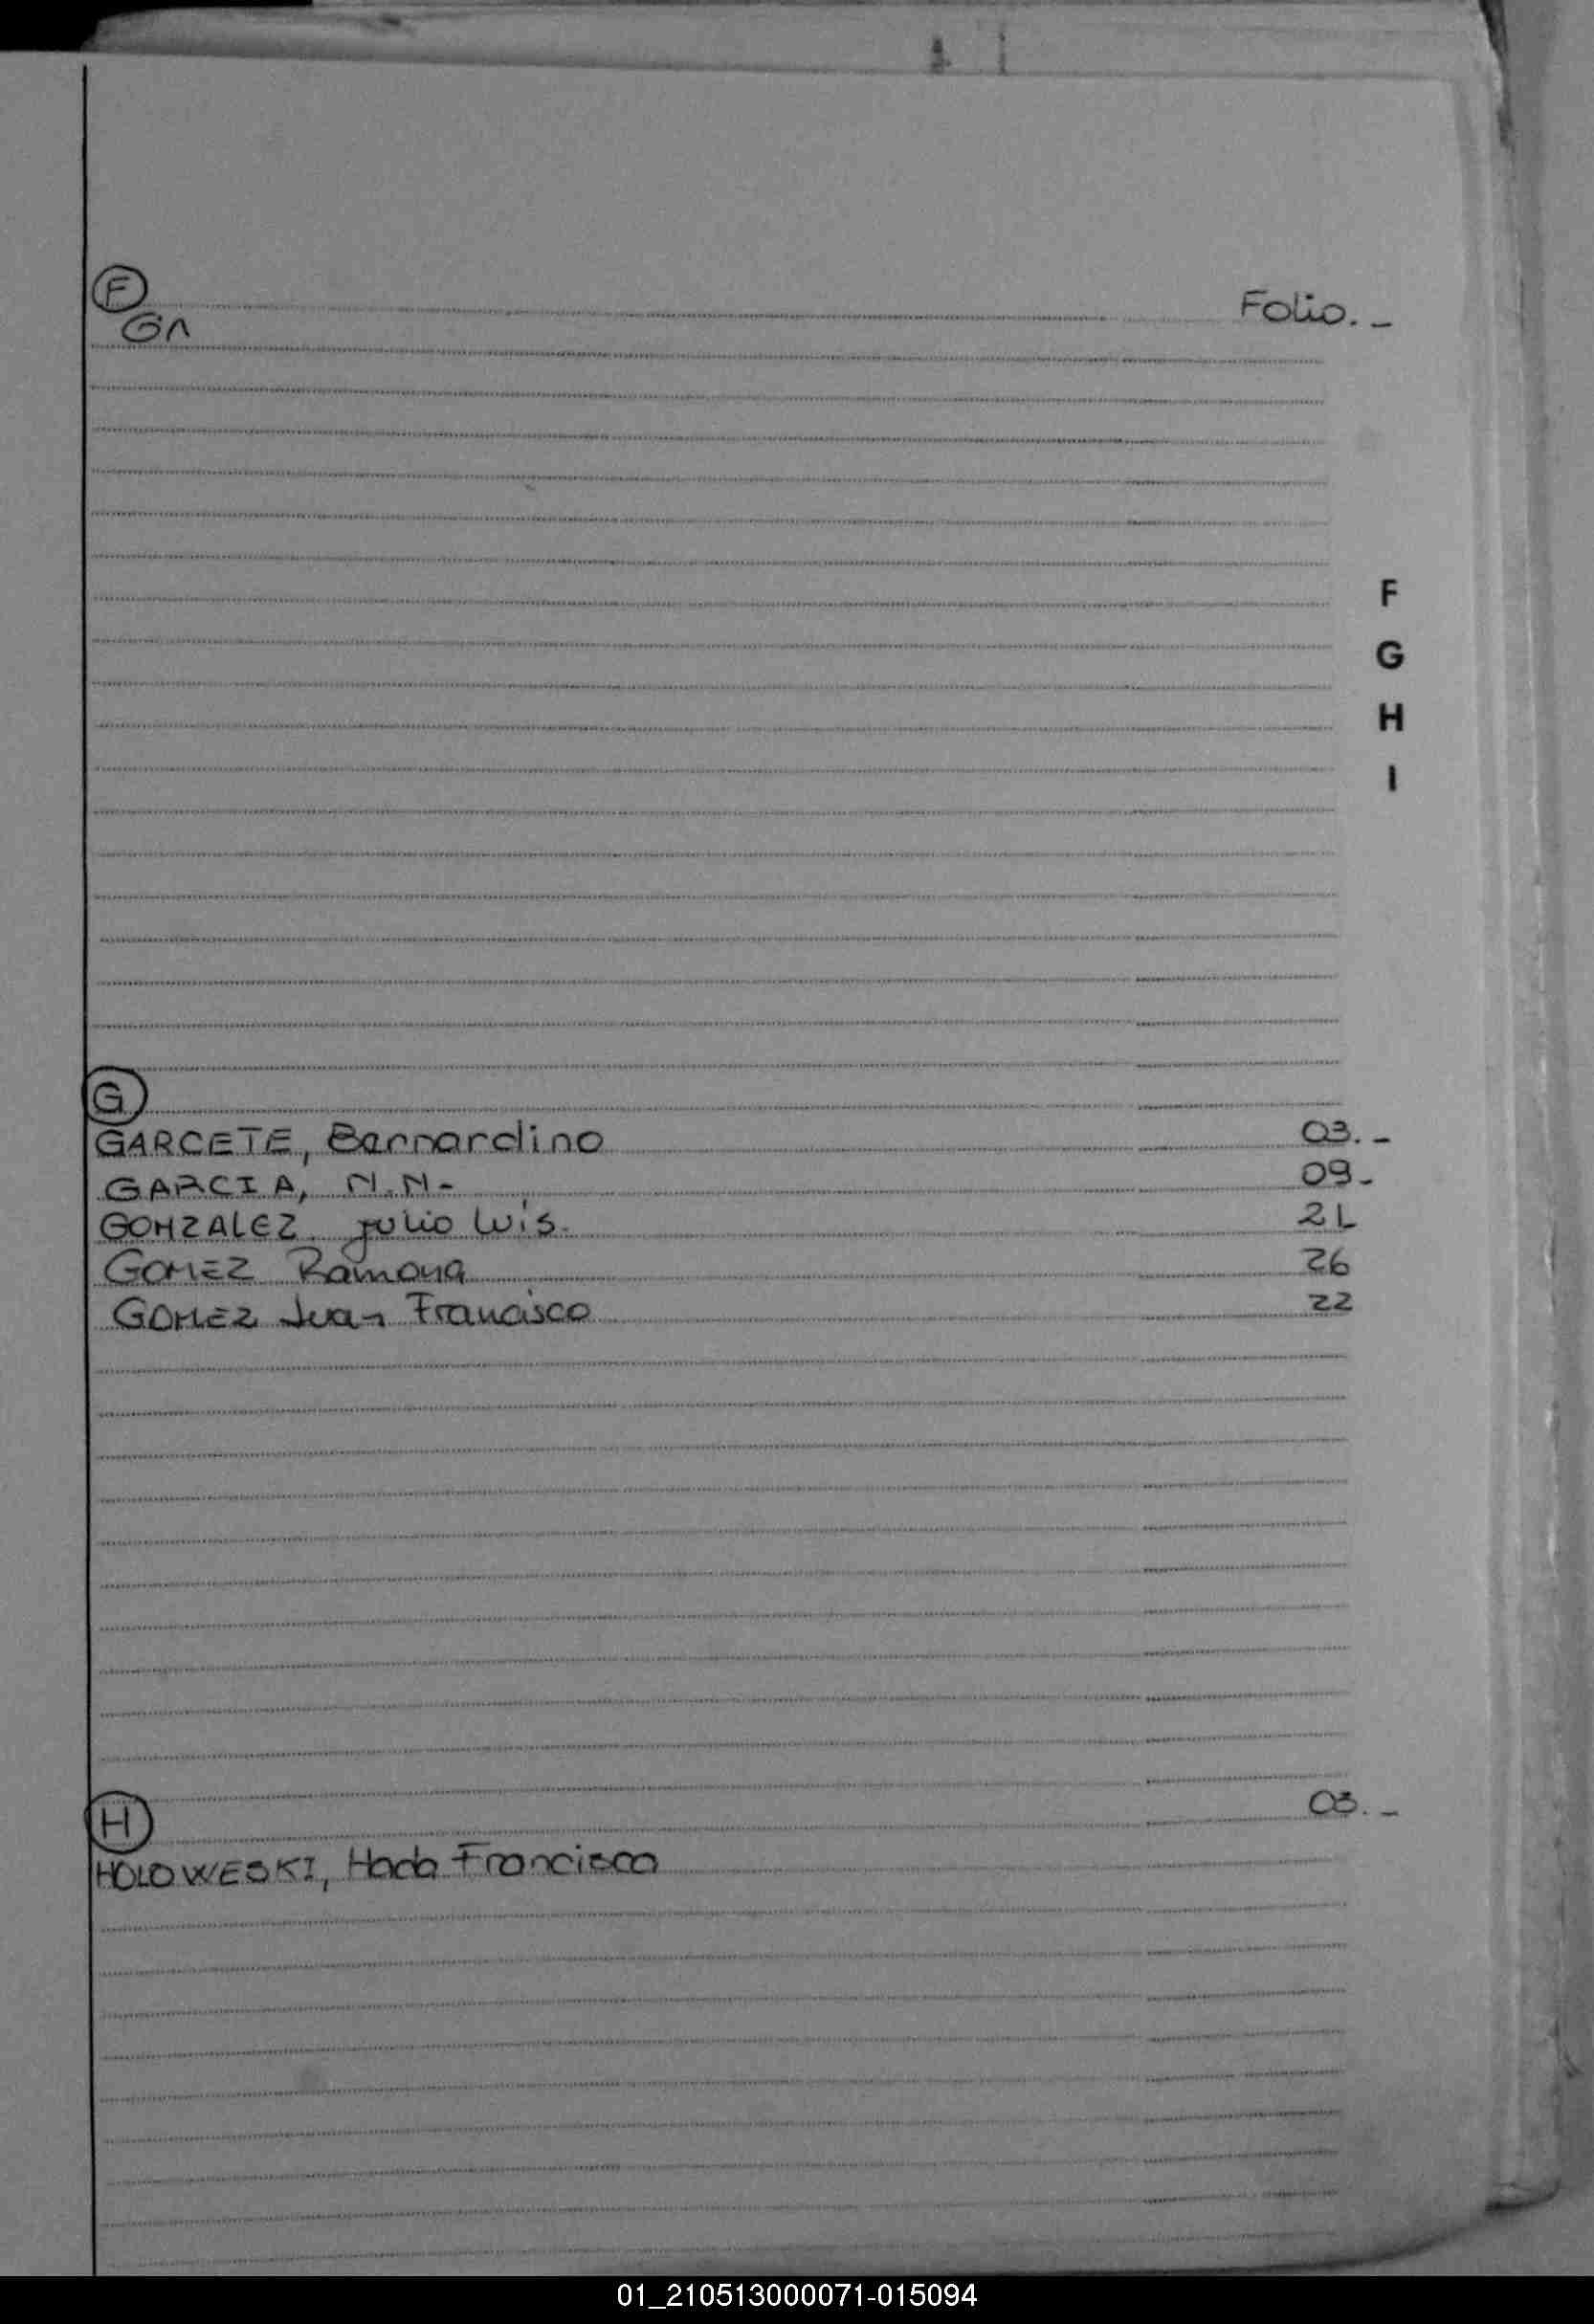 F Folio.-
GA
F
G
H
I
G
GARCETE, Bernardino 03.-
GARCIA, N.N- 09-
GONZALEZ julio luis. 21
GOMEZ Ramona 26
GOMEZ Juan Francisco 22
H 03.-
HOLOWESKI, Hada Francisca
01_210513000071-015094